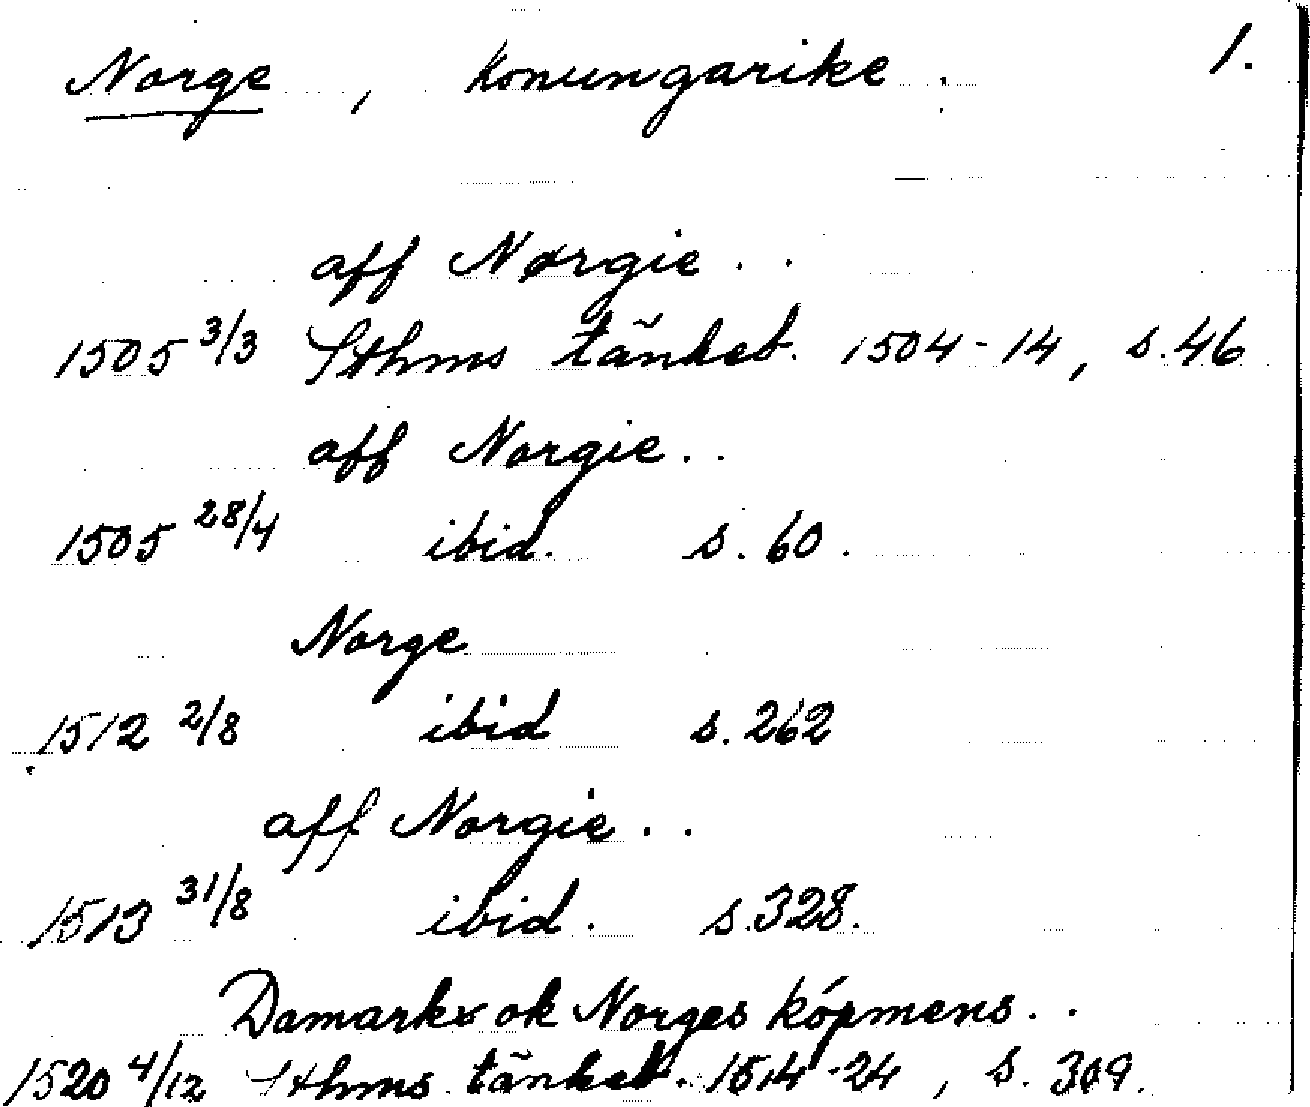 Norge, konungarike. 1.
aff Norgie..
1505 3/3 Sthms tänkeb. 1504-14, s.46
aff Norgie..
1505 28/4 ibid. s.60.
Norge
1512 2/8 ibid s.262
aff Norgie..
1513 31/8 ibid. s.328.
Damarks ok Norges köpmens..
1520 4/12 Sthms tänkeb. 1514-24, s. 309.